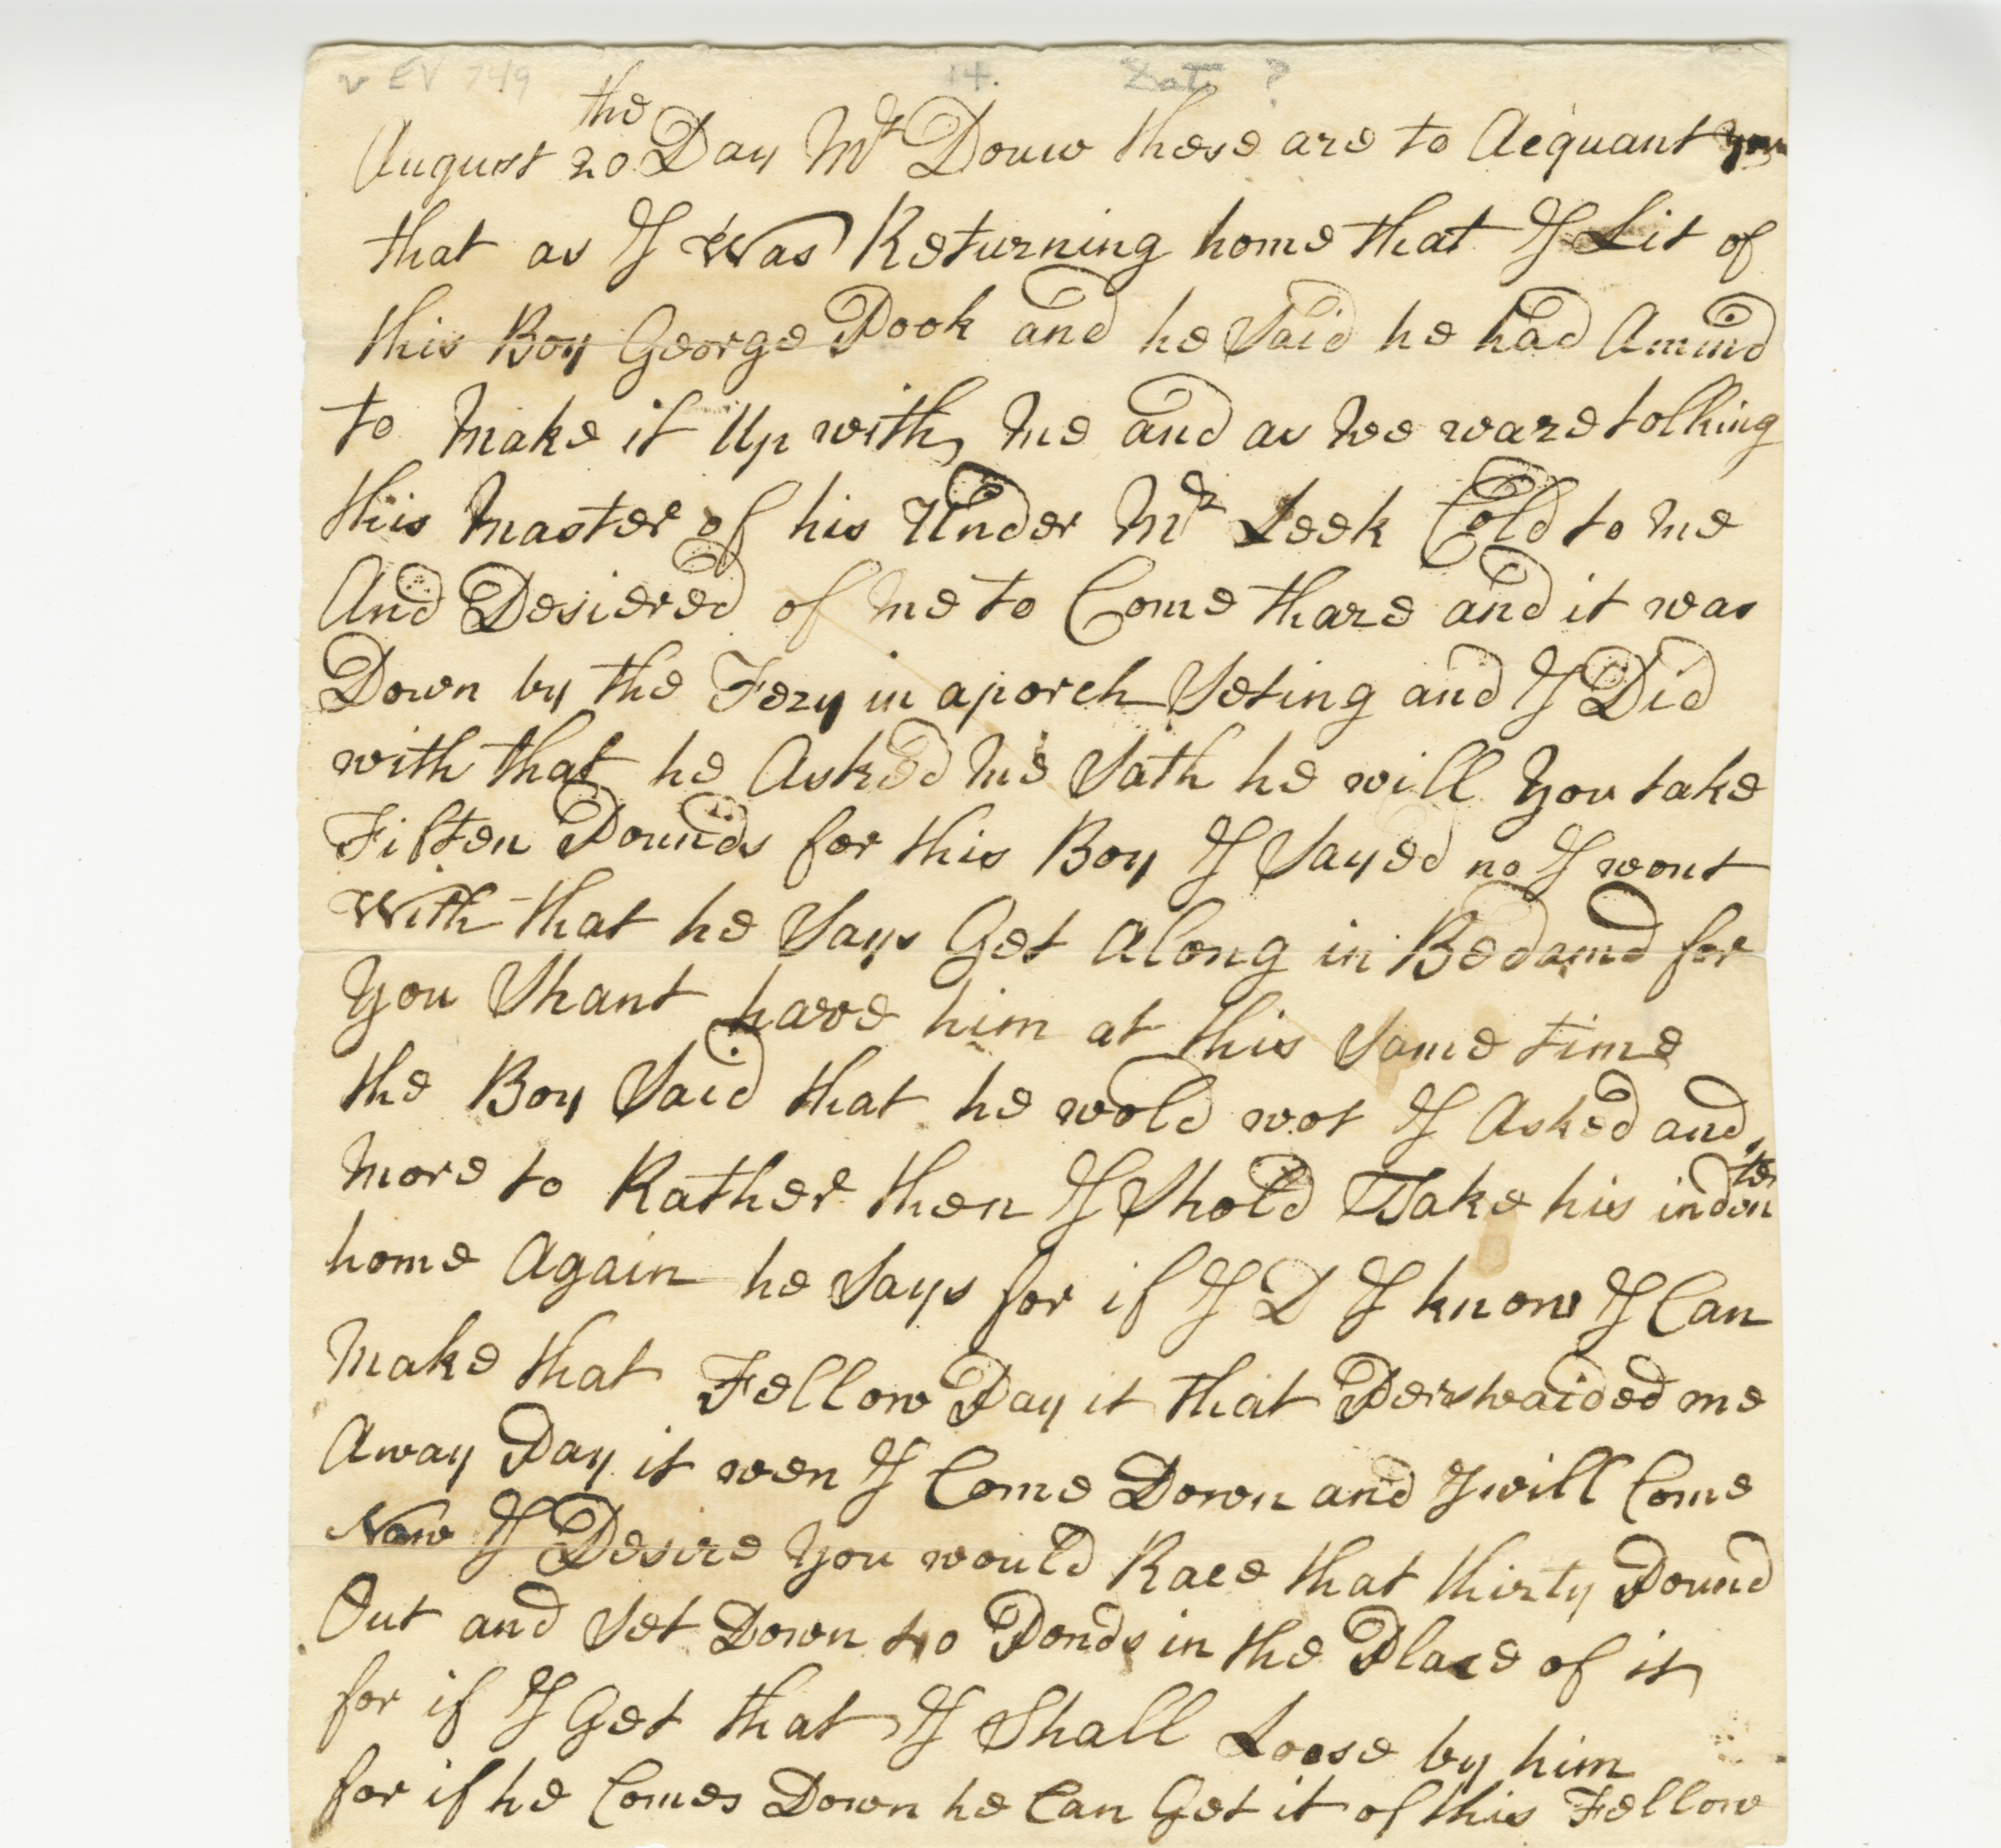 v EV 749 14. Date ?
the
August 20 Day Mr Douw these are to Acquant you
that as I Was Returning home that I Lit of
this Boy George Pook and he Said he had Amind
to Make it Up with me and as we ware tolking
this Master of his Under Mr Leek Cold to me
And Desiered of me to Come thare and it was
Down by the Fery in a porch Seting and I Did
with that he Asked me Sath he will You take
Fiften Pounds for this Boy I Sayed no I wont
With that he Says Get Along in Bedamd for
You Shant have him at this Same time
the Boy Said that he wold wot I Asked and
More to Rather then I Shold Take his inden
ter
home Again he Says for if I D I know I Can
Make that Fellow Pay it that Pershaided me
Away Pay it wen I Come Down and I will Come
Now I Desire You would Race that thirty Pound
Out and Set Down 40 Ponds in the Place of it
for if I Get that I Shall Loose by him
for if he Comes Down he Can Get it of this Fellow